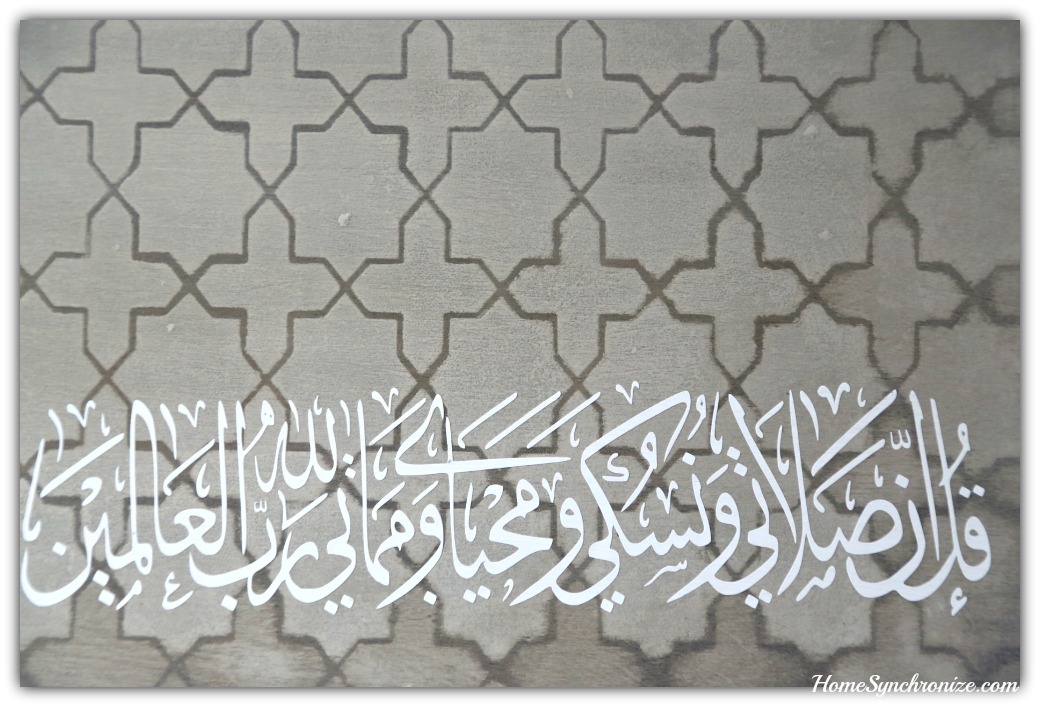 قُلْ إِنَّ صَلَاتِي وَنُسُكِي وَمَحْيَايَ وَمَمَاتِي لِلَّهِ رَبِّ الْعَالَمِينَ
HomeSynchronize.com